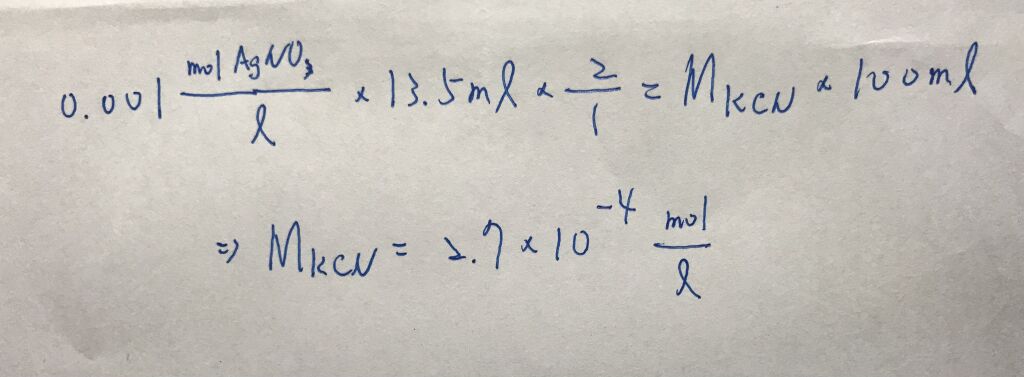 0.001 mol AgNO₃/l × 13.5 ml × 2/1 = M_KCN × 100 ml
⇒ M_KCN = 2.7 × 10⁻⁴ mol/l